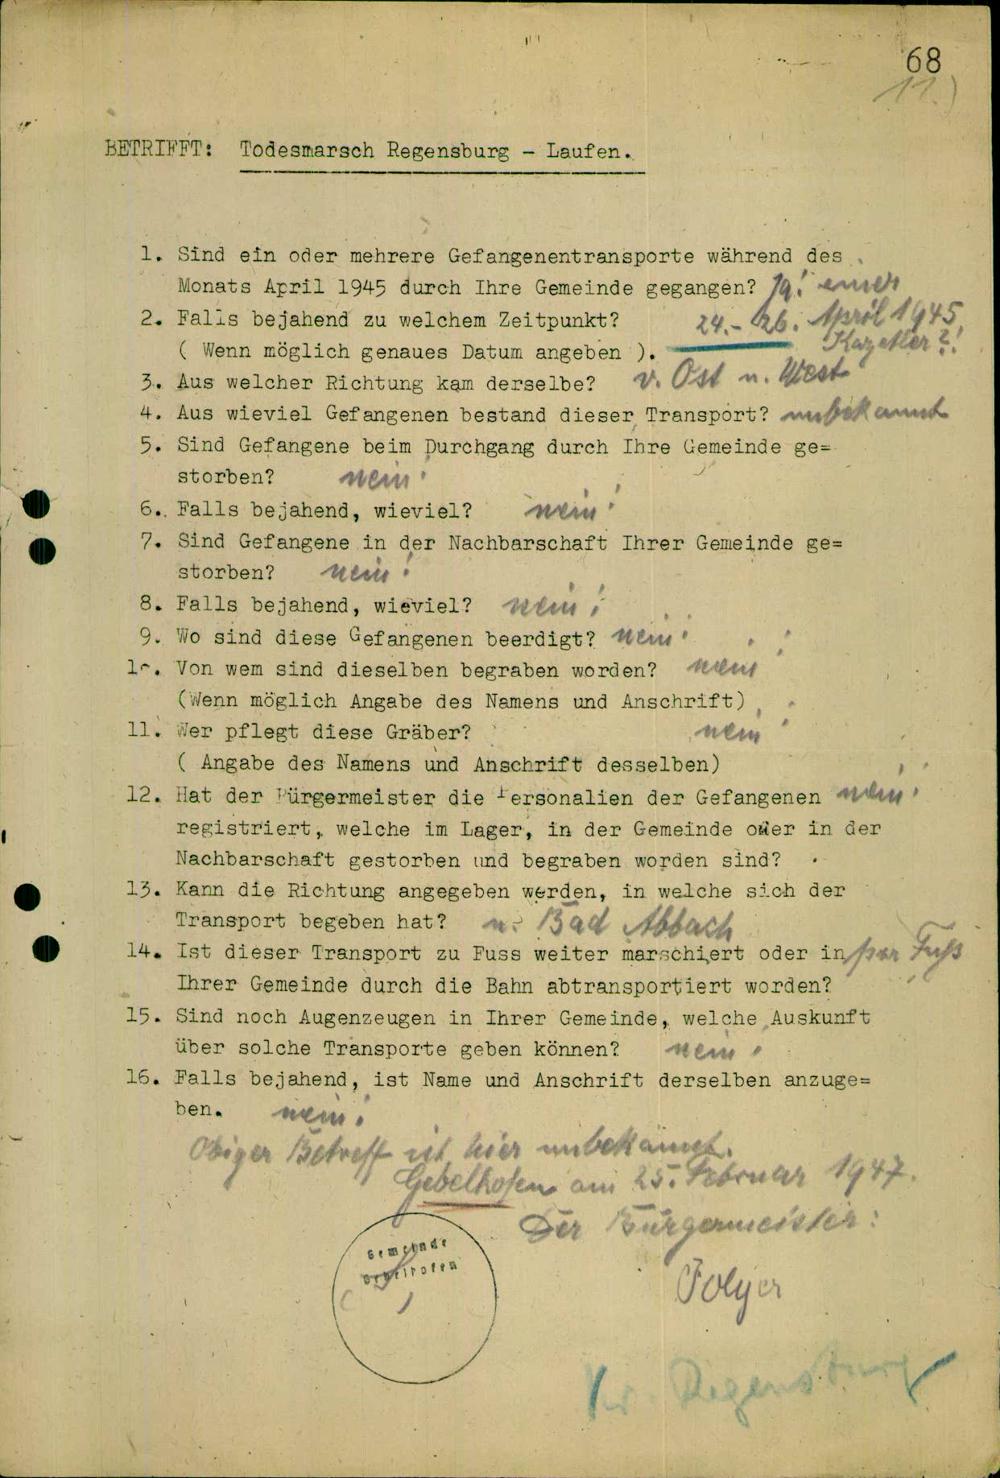 68
11.)
BETRIFFT: Todesmarsch Regensburg - Laufen.
1. Sind ein oder mehrere Gefangenentransporte während des
Monats April 1945 durch Ihre Gemeinde gegangen? Ja! einer
2. Falls bejahend zu welchem Zeitpunkt? 24.- 26. April 1945
( Wenn möglich genaues Datum angeben ). Kazetler?!
3. Aus welcher Richtung kam derselbe? v. Ost n. West
4. Aus wieviel Gefangenen bestand dieser Transport? unbekannt
5. Sind Gefangene beim Durchgang durch Ihre Gemeinde ge=
storben? nein!
6. Falls bejahend, wieviel? nein!
7. Sind Gefangene in der Nachbarschaft Ihrer Gemeinde ge=
storben? nein!
8. Falls bejahend, wieviel? nein!
9. Wo sind diese Gefangenen beerdigt? nein!
10. Von wem sind dieselben begraben worden? nein!
(Wenn möglich Angabe des Namens und Anschrift)
11. Wer pflegt diese Gräber? nein!
( Angabe des Namens und Anschrift desselben)
12. Hat der Bürgermeister die Personalien der Gefangenen nein!
registriert, welche im Lager, in der Gemeinde oder in der
Nachbarschaft gestorben und begraben worden sind?
13. Kann die Richtung angegeben werden, in welche sich der
Transport begeben hat? n. Bad Abbach
14. Ist dieser Transport zu Fuss weiter marschiert oder in per Fuß
Ihrer Gemeinde durch die Bahn abtransportiert worden?
15. Sind noch Augenzeugen in Ihrer Gemeinde, welche Auskunft
über solche Transporte geben können? nein!
16. Falls bejahend, ist Name und Anschrift derselben anzuge=
ben. nein!
Obiger Betreff ist hier unbekannt.
Gebelkofen am 25. Februar 1947.
Der Bürgermeister:
Gemeinde
Gebelkofen
Kr. Regensburg